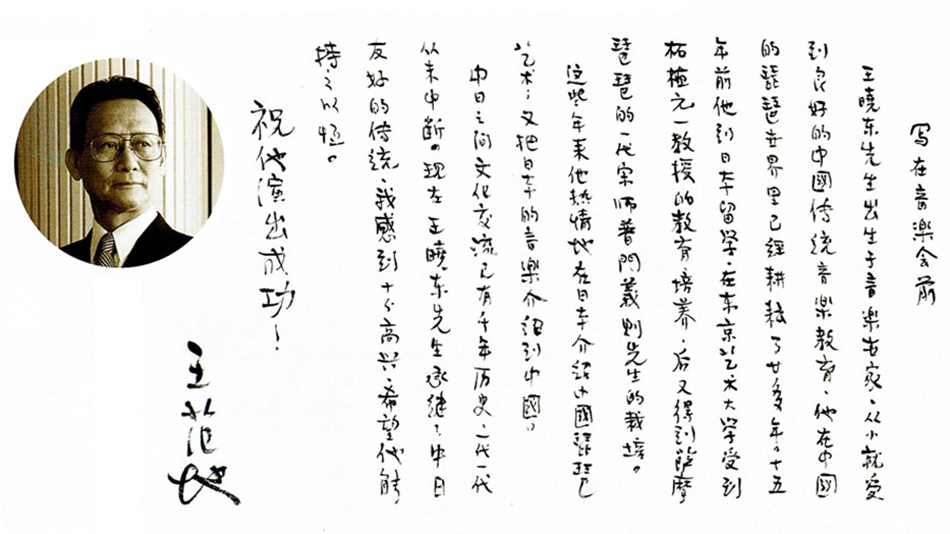 写在音楽会前
王曉东先生出生于音楽世家。从小就受
到良好的中國传统音楽教育。他在中國
的琵琶世界里已经耕耘了廿多年。十五
年前他到日本留学。在东京艺术大学受到
柘植元一教授的教育培养。后又得到萨摩
琵琶的一代宗师普門義則先生的栽培。
这些年来他热情地在日本介绍中國琵琶
艺术；又把日本的音楽介绍到中國。
中日之间文化交流已有千年历史，一代一代
从未中断。现在王曉东先生承继了中日
友好的传统，我感到十分高兴。希望他能
持之以恒。
祝他演出成功！
王范地